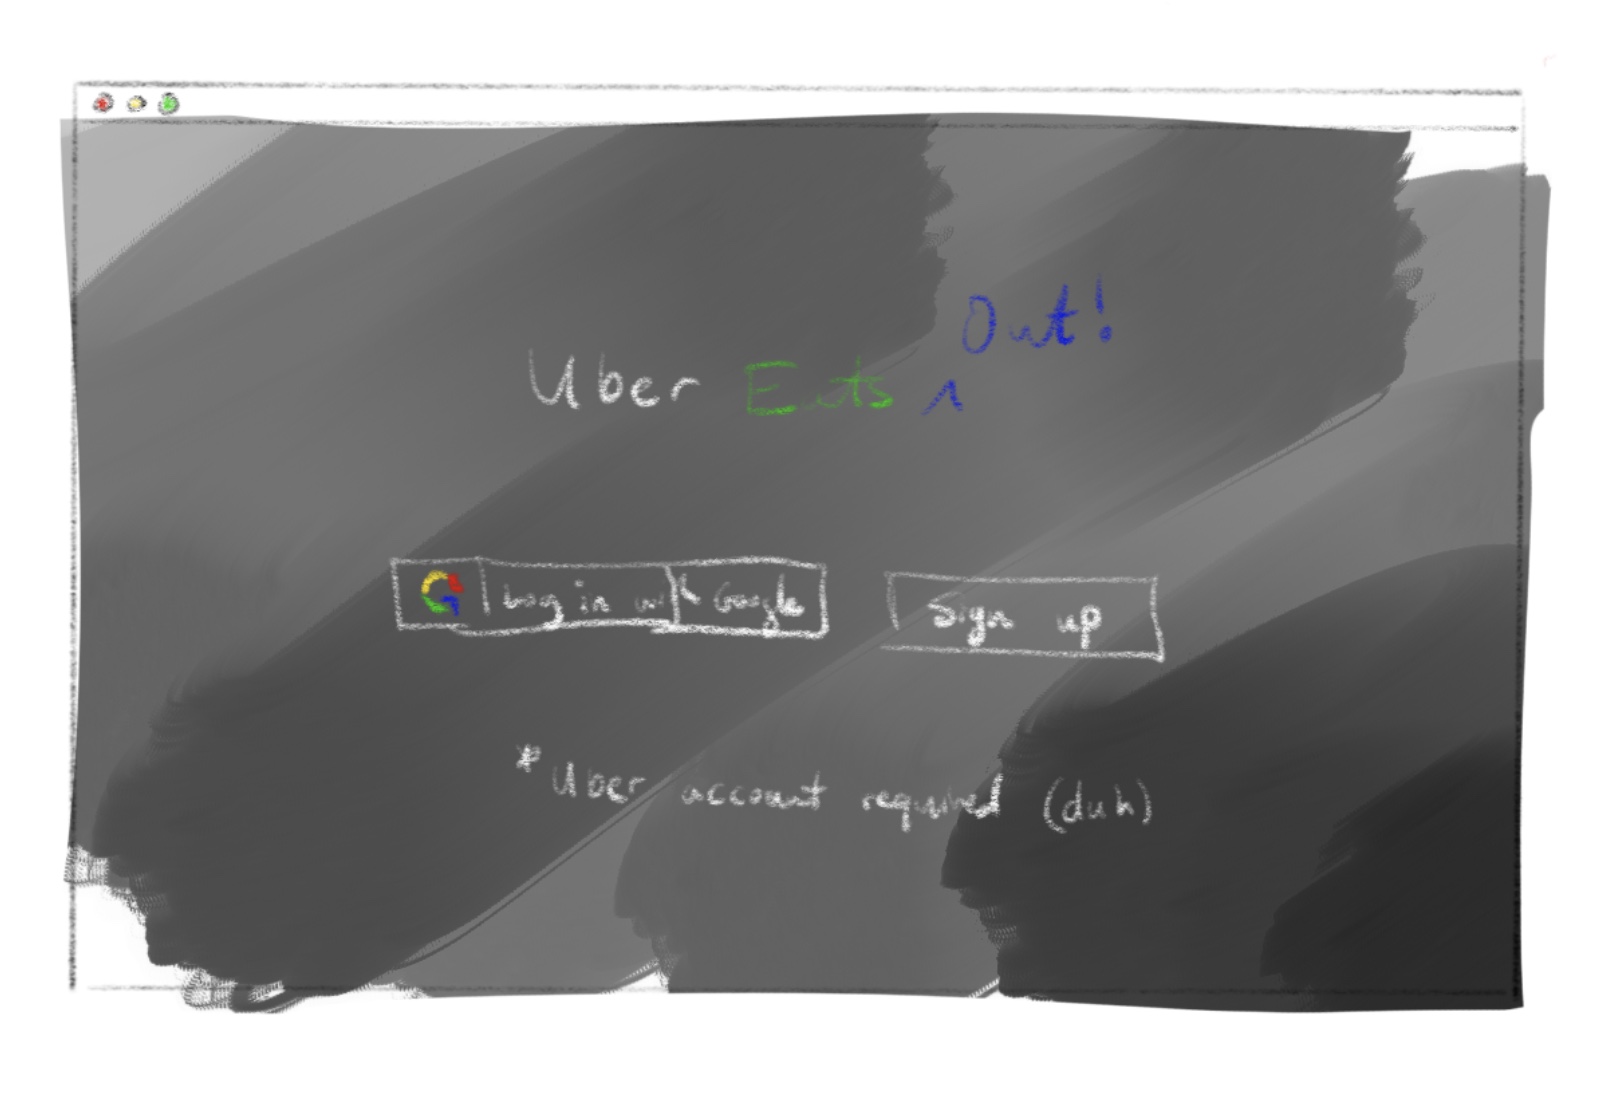 Uber Eats ^ Out!
G Log in w/ Google
Sign up
*Uber account required (duh)